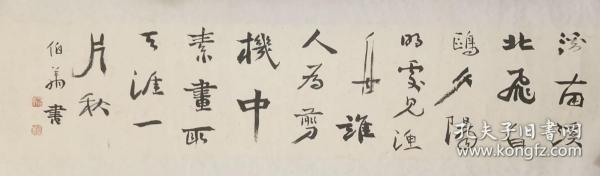 溪南溪
北飛白
鷗夕陽
明處見漁
舟誰
人為剪
機中
素畫取
天涯一
片秋
伯書
孔夫子旧书网
www.kongfz.com